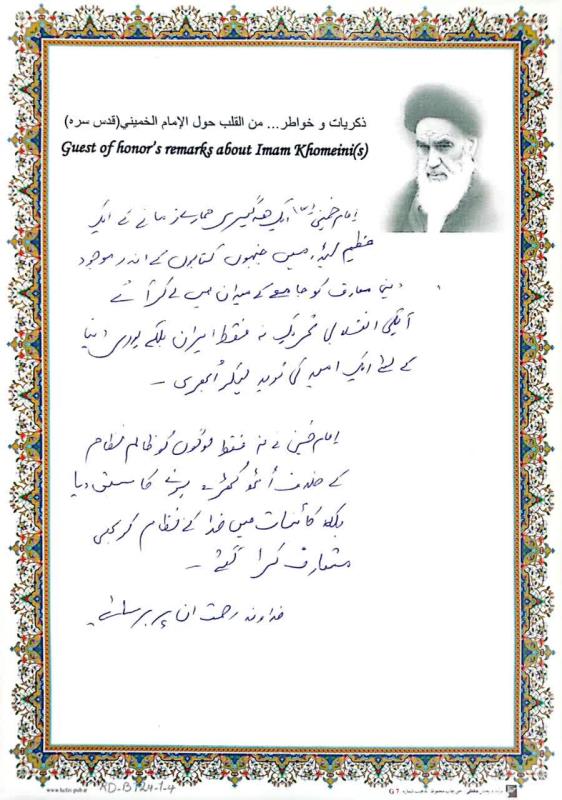 ذكريات و خواطر... من القلب حول الإمام الخميني(قدس سره)
Guest of honor's remarks about Imam Khomeini(s)
امام خمینی ہمارے زمانے کے ایک
عظیم لیڈر ہیں جنہوں کتابوں کے اندر موجود
دینی معارف کو جامعے کے میدان میں لے کر آئے
آپکی انقلابی تحریک نہ فقط ایران بلکے پوری دنیا
کے لئے ایک امید کی نوید لیکر اُبھری ۔
امام خمینی نے نہ فقط لوگوں کو ظالم نظام
کے خلاف اُٹھ کھڑے ہونے کا سبق دیا
بلکہ کائنات میں خدا کے نظام کو بھی
متعارف کرا گئے ۔
خداوند رحمت ان پر برسائے
RD-B124-1-4